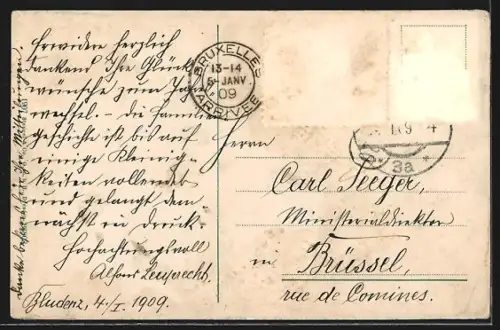 Erwidere herzlich
dankend Ihre Glück-
wünsche zum Jahres
wechsel. - die Familien
geschichte ist bis auf
einige Kleinig-
keiten vollendet
und gelangt dem-
nächst in Druck.
Hochachtungsvoll
Alfons Leuprecht.
Bludenz, 4./I. 1909.
BRUXELLES
13-14
5-JANV.
09
ARRIVEE
Herrn
Carl Seeger,
Ministerialdirektor
in
Brüssel,
rue de Comines.
3a